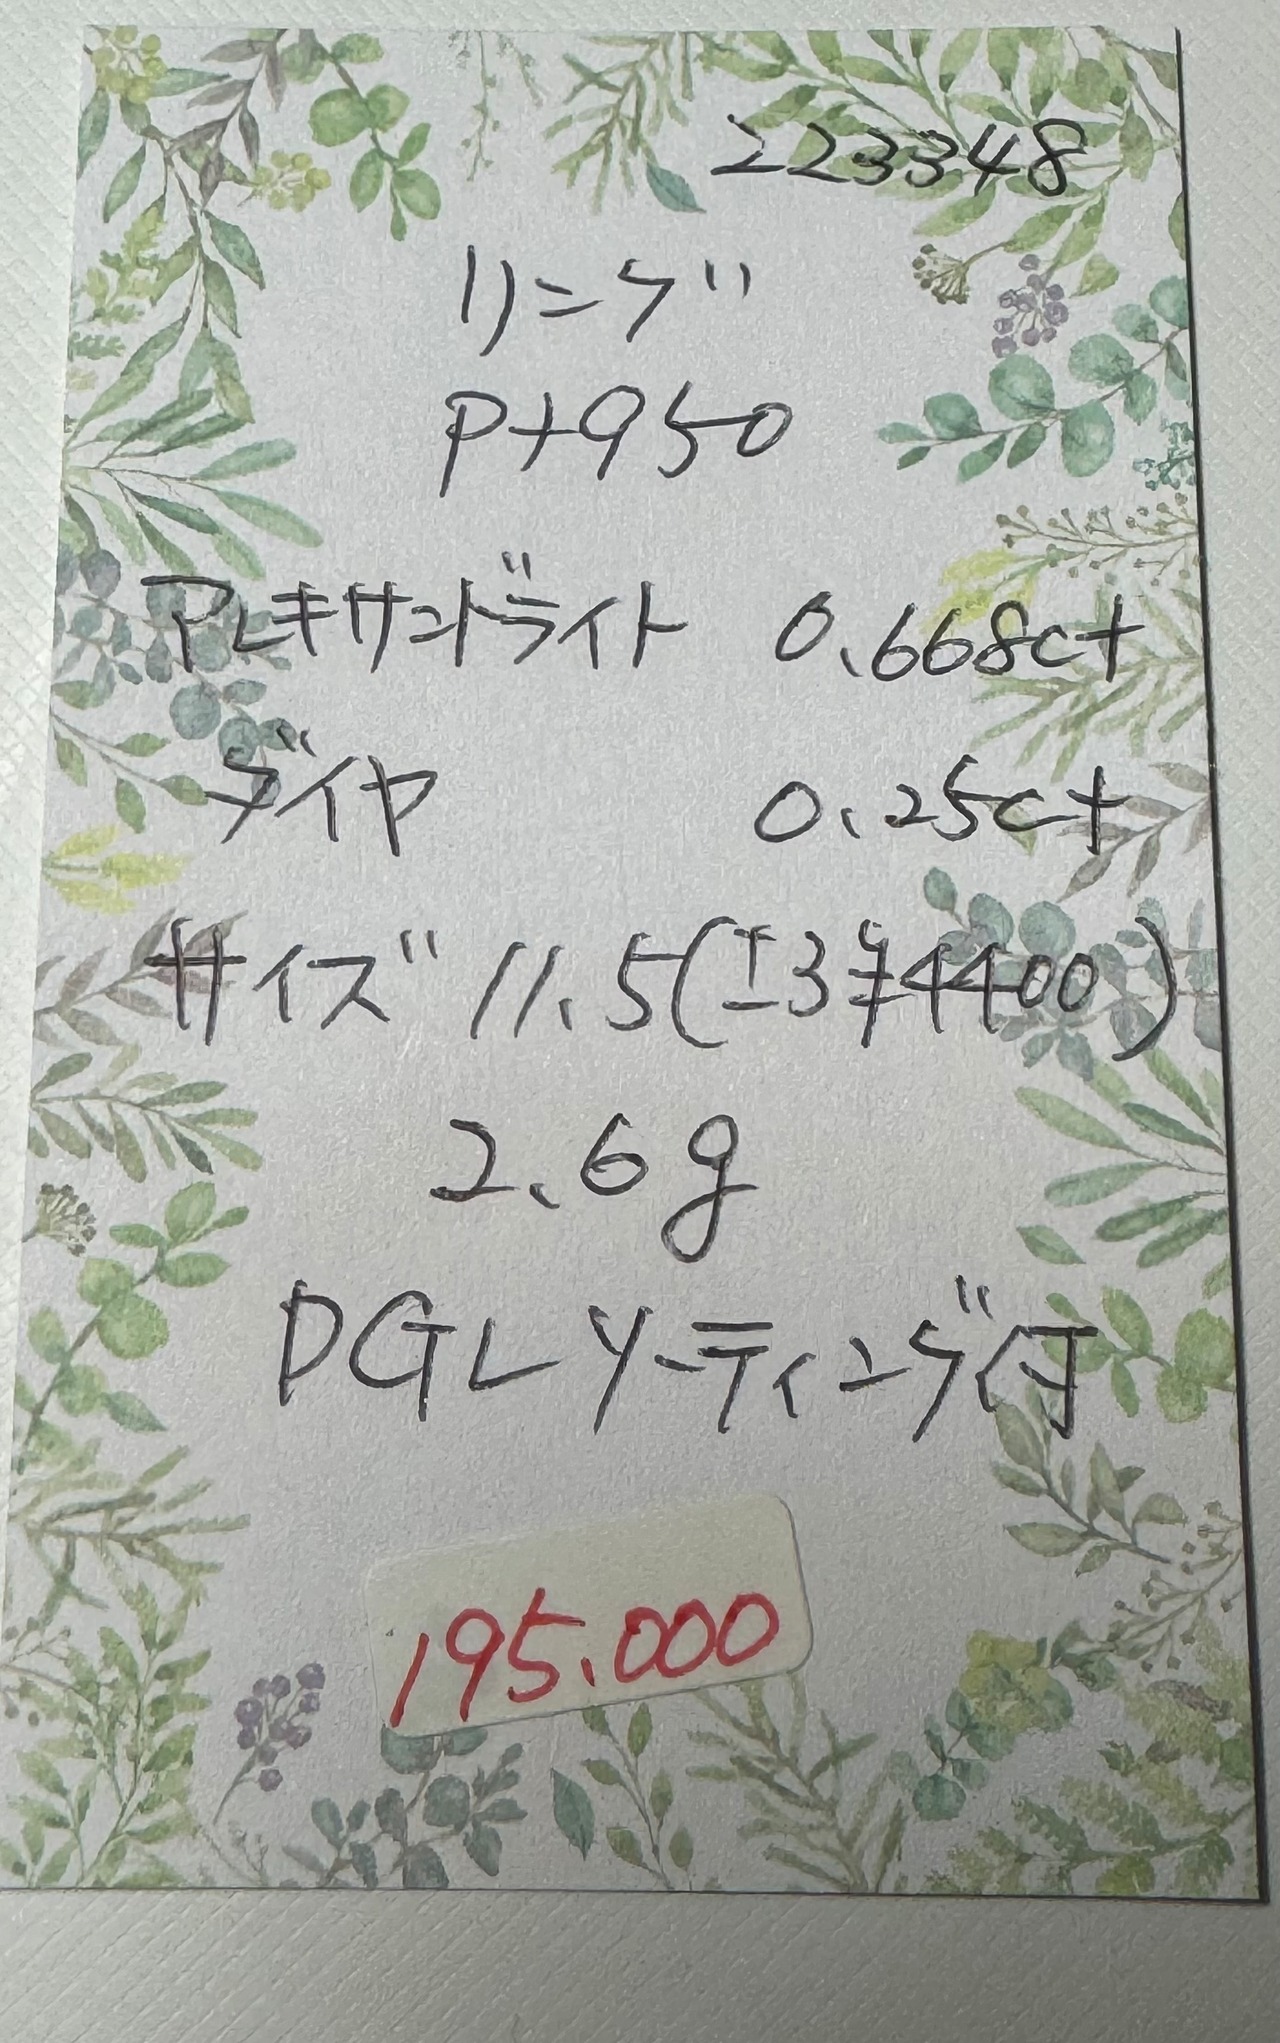 223348
リング
Pt950
アレキサンドライト 0.668ct
ダイヤ 0.25ct
サイズ 11.5(±3 ¥4400)
2.6g
DGLソーティング付
195.000